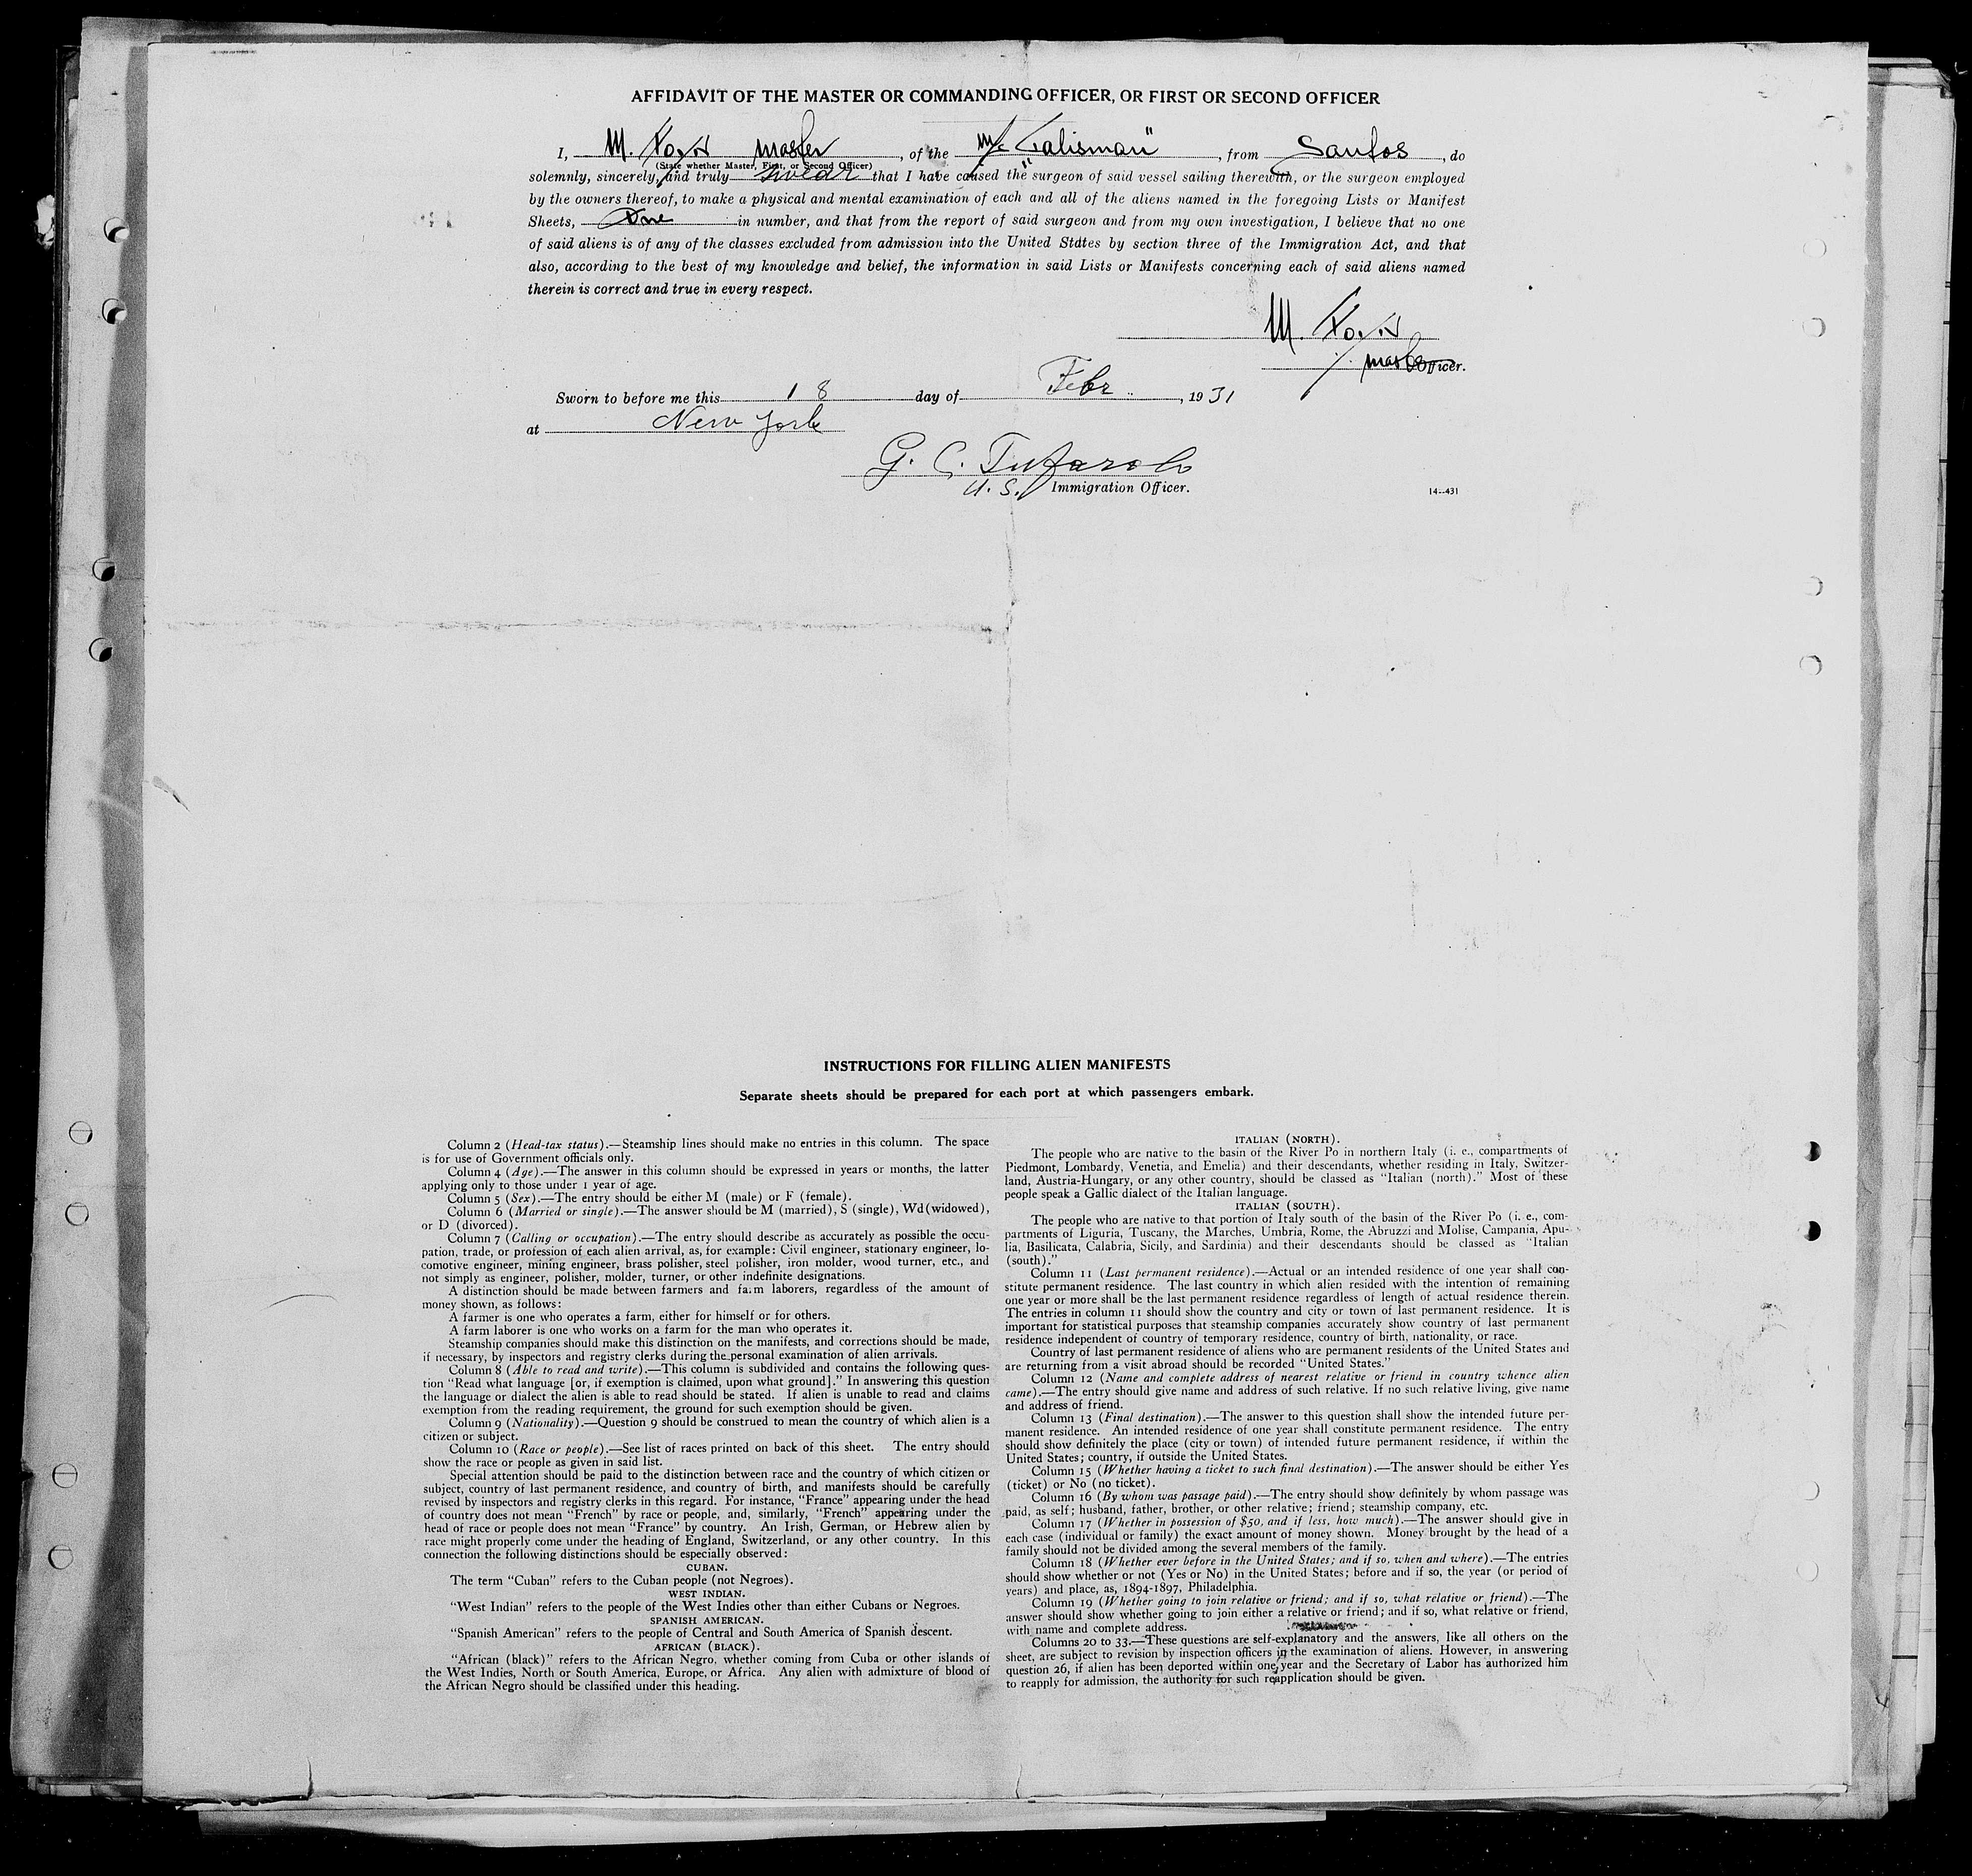 AFFIDAVIT OF THE MASTER OR COMMANDING OFFICER, OR FIRST OR SECOND OFFICER
I, M. master, of the M/S "Talisman", from Santos, do
(State whether Master, First, or Second Officer)
solemnly, sincerely, and truly swear that I have caused the surgeon of said vessel sailing therewith, or the surgeon employed
by the owners thereof, to make a physical and mental examination of each and all of the aliens named in the foregoing Lists or Manifest
Sheets, One in number, and that from the report of said surgeon and from my own investigation, I believe that no one
of said aliens is of any of the classes excluded from admission into the United States by section three of the Immigration Act, and that
also, according to the best of my knowledge and belief, the information in said Lists or Manifests concerning each of said aliens named
therein is correct and true in every respect.
M.
master Officer.
Sworn to before me this 18 day of Febr., 1931
at New York
G. C. Tufarolo
U.S. Immigration Officer.
14-431
INSTRUCTIONS FOR FILLING ALIEN MANIFESTS
Separate sheets should be prepared for each port at which passengers embark.
Column 2 (Head-tax status).—Steamship lines should make no entries in this column. The space
is for use of Government officials only.
Column 4 (Age).—The answer in this column should be expressed in years or months, the latter
applying only to those under 1 year of age.
Column 5 (Sex).—The entry should be either M (male) or F (female).
Column 6 (Married or single).—The answer should be M (married), S (single), Wd (widowed),
or D (divorced).
Column 7 (Calling or occupation).—The entry should describe as accurately as possible the occu-
pation, trade, or profession of each alien arrival, as, for example: Civil engineer, stationary engineer, lo-
comotive engineer, mining engineer, brass polisher, steel polisher, iron molder, wood turner, etc., and
not simply as engineer, polisher, molder, turner, or other indefinite designations.
A distinction should be made between farmers and farm laborers, regardless of the amount of
money shown, as follows:
A farmer is one who operates a farm, either for himself or for others.
A farm laborer is one who works on a farm for the man who operates it.
Steamship companies should make this distinction on the manifests, and corrections should be made,
if necessary, by inspectors and registry clerks during the personal examination of alien arrivals.
Column 8 (Able to read and write).—This column is subdivided and contains the following ques-
tion "Read what language [or, if exemption is claimed, upon what ground]." In answering this question
the language or dialect the alien is able to read should be stated. If alien is unable to read and claims
exemption from the reading requirement, the ground for such exemption should be given.
Column 9 (Nationality).—Question 9 should be construed to mean the country of which alien is a
citizen or subject.
Column 10 (Race or people).—See list of races printed on back of this sheet. The entry should
show the race or people as given in said list.
Special attention should be paid to the distinction between race and the country of which citizen or
subject, country of last permanent residence, and country of birth, and manifests should be carefully
revised by inspectors and registry clerks in this regard. For instance, "France" appearing under the head
of country does not mean "French" by race or people, and, similarly, "French" appearing under the
head of race or people does not mean "France" by country. An Irish, German, or Hebrew alien by
race might properly come under the heading of England, Switzerland, or any other country. In this
connection the following distinctions should be especially observed:
CUBAN.
The term "Cuban" refers to the Cuban people (not Negroes).
WEST INDIAN.
"West Indian" refers to the people of the West Indies other than either Cubans or Negroes.
SPANISH AMERICAN.
"Spanish American" refers to the people of Central and South America of Spanish descent.
AFRICAN (BLACK).
"African (black)" refers to the African Negro, whether coming from Cuba or other islands of
the West Indies, North or South America, Europe, or Africa. Any alien with admixture of blood of
the African Negro should be classified under this heading.
ITALIAN (NORTH).
The people who are native to the basin of the River Po in northern Italy (i. e., compartments of
Piedmont, Lombardy, Venetia, and Emelia) and their descendants, whether residing in Italy, Switzer-
land, Austria-Hungary, or any other country, should be classed as "Italian (north)." Most of these
people speak a Gallic dialect of the Italian language.
ITALIAN (SOUTH).
The people who are native to that portion of Italy south of the basin of the River Po (i. e., com-
partments of Liguria, Tuscany, the Marches, Umbria, Rome, the Abruzzi and Molise, Campania, Apu-
lia, Basilicata, Calabria, Sicily, and Sardinia) and their descendants should be classed as "Italian
(south)."
Column 11 (Last permanent residence).—Actual or an intended residence of one year shall con-
stitute permanent residence. The last country in which alien resided with the intention of remaining
one year or more shall be the last permanent residence regardless of length of actual residence therein.
The entries in column 11 should show the country and city or town of last permanent residence. It is
important for statistical purposes that steamship companies accurately show country of last permanent
residence independent of country of temporary residence, country of birth, nationality, or race.
Country of last permanent residence of aliens who are permanent residents of the United States and
are returning from a visit abroad should be recorded "United States."
Column 12 (Name and complete address of nearest relative or friend in country whence alien
came).—The entry should give name and address of such relative. If no such relative living, give name
and address of friend.
Column 13 (Final destination).—The answer to this question shall show the intended future per-
manent residence. An intended residence of one year shall constitute permanent residence. The entry
should show definitely the place (city or town) of intended future permanent residence, if within the
United States; country, if outside the United States.
Column 15 (Whether having a ticket to such final destination).—The answer should be either Yes
(ticket) or No (no ticket).
Column 16 (By whom was passage paid).—The entry should show definitely by whom passage was
paid, as self; husband, father, brother, or other relative; friend; steamship company, etc.
Column 17 (Whether in possession of $50, and if less, how much).—The answer should give in
each case (individual or family) the exact amount of money shown. Money brought by the head of a
family should not be divided among the several members of the family.
Column 18 (Whether ever before in the United States; and if so, when and where).—The entries
should show whether or not (Yes or No) in the United States; before and if so, the year (or period of
years) and place, as, 1894-1897, Philadelphia.
Column 19 (Whether going to join relative or friend; and if so, what relative or friend).—The
answer should show whether going to join either a relative or friend; and if so, what relative or friend,
with name and complete address.
Columns 20 to 33.—These questions are self-explanatory and the answers, like all others on the
sheet, are subject to revision by inspection officers in the examination of aliens. However, in answering
question 26, if alien has been deported within one year and the Secretary of Labor has authorized him
to reapply for admission, the authority for such reapplication should be given.